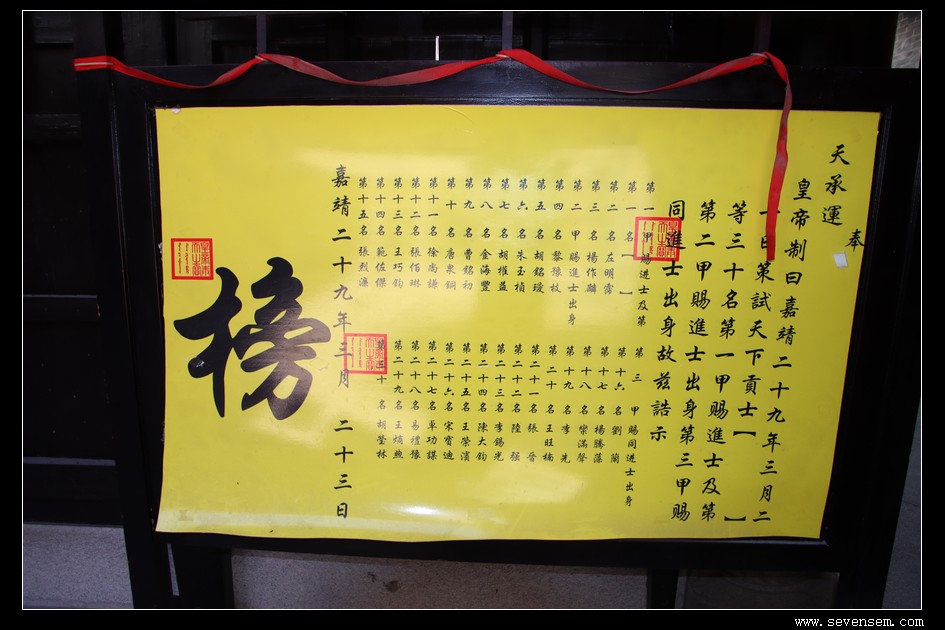 奉
天承運
皇帝制曰嘉靖二十九年三月二
一日策試天下貢士【 】
等三十名第一甲賜進士及第
第二甲賜進士出身第三甲賜
同進士出身故茲誥示
第一甲賜進士及第
第一名【 】
第二名左明霈
第三名楊作麟
第二甲賜進士出身
第四名黎豫枚
第五名胡銘瑗
第六名朱玉楨
第七名胡權益
第八名金海豐
第九名曹銘初
第十名唐泉鋼
第十一名徐尚謙
第十二名張佰琳
第十三名王巧鈞
第十四名範佐傑
第十五名張烈濂
第三甲賜同進士出身
第十六名劉蘭
第十七名楊騰藻
第十八名欒滿聲
第十九名李先
第二十名王旺楠
第二十一名張晉
第二十二名陸強
第二十三名李錫光
第二十四名陳大鈞
第二十五名王榮濱
第二十六名宋寶迪
第二十七名卓功謀
第二十八名易禮豫
第二十九名王煦
第三十名胡瑩林
嘉靖二十九年三月二十三日
榜
www.sevensem.com